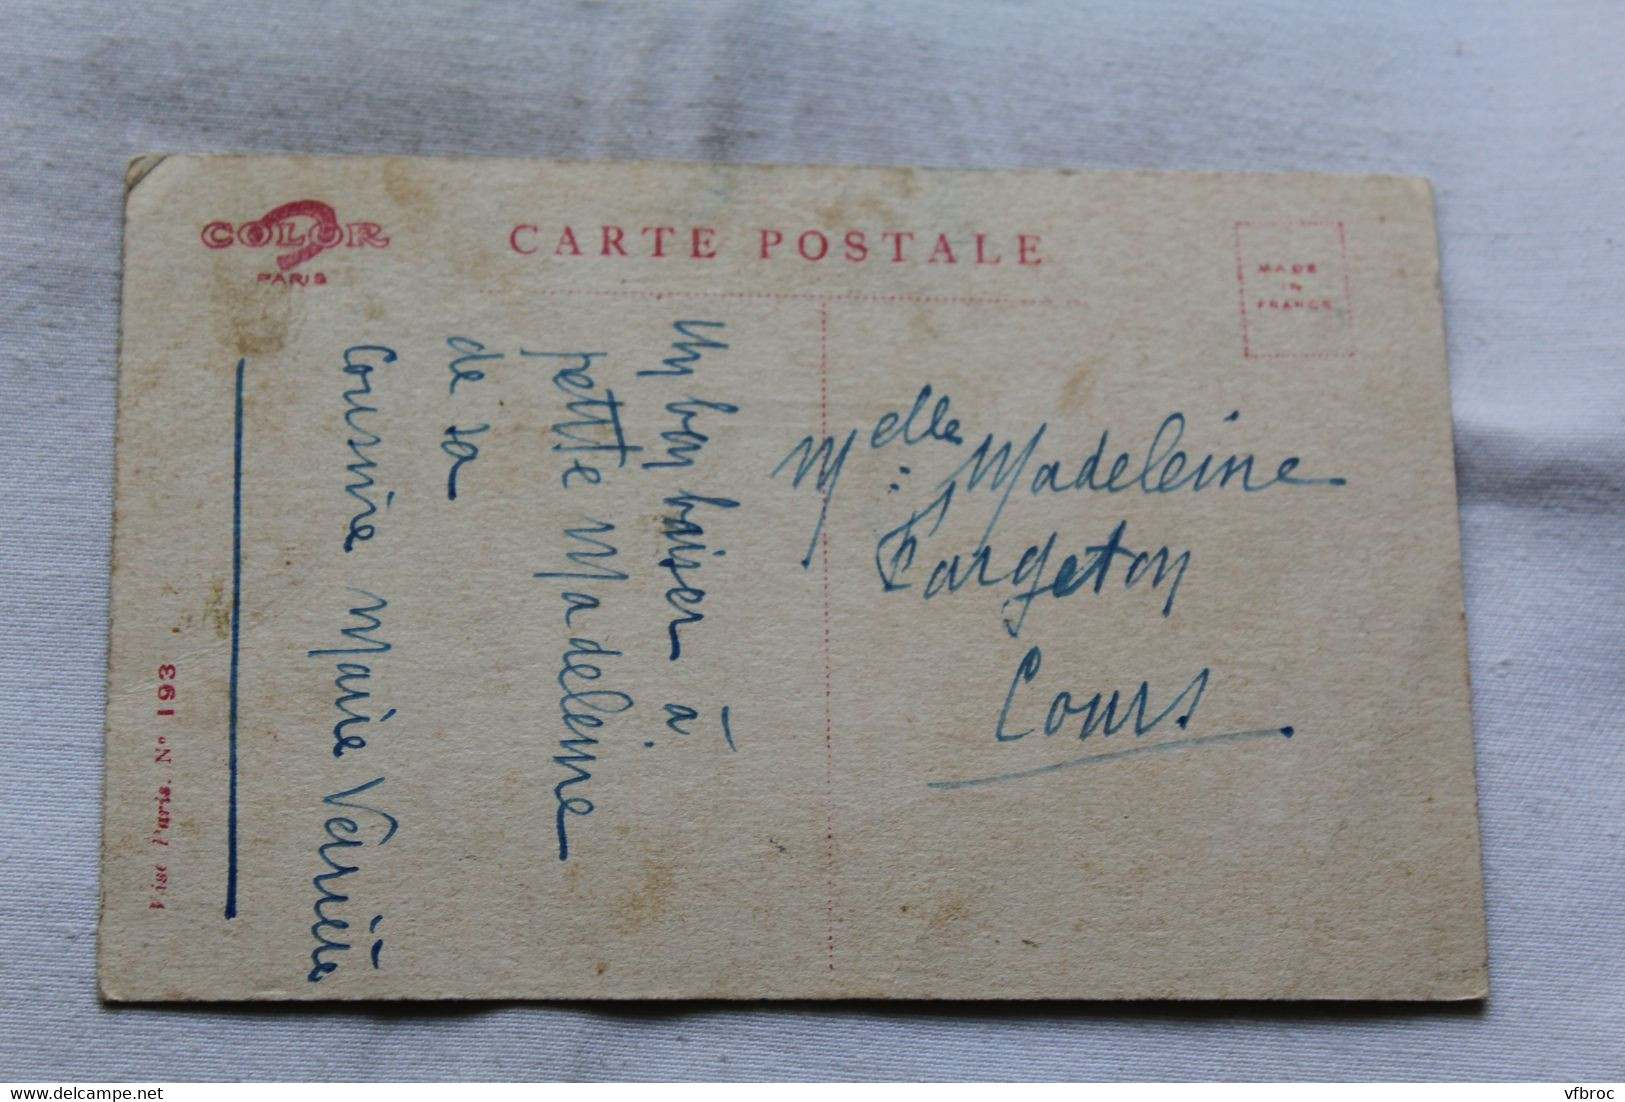 COLOR
PARIS
CARTE POSTALE
MADE
IN
FRANCE
Un bon baiser à
petite Madeleine
de sa
Cousine Marie Verrière
Melle Madeleine
Fargeton
Cours
Visé Paris. N° 193
delcampe.net
vfbroc